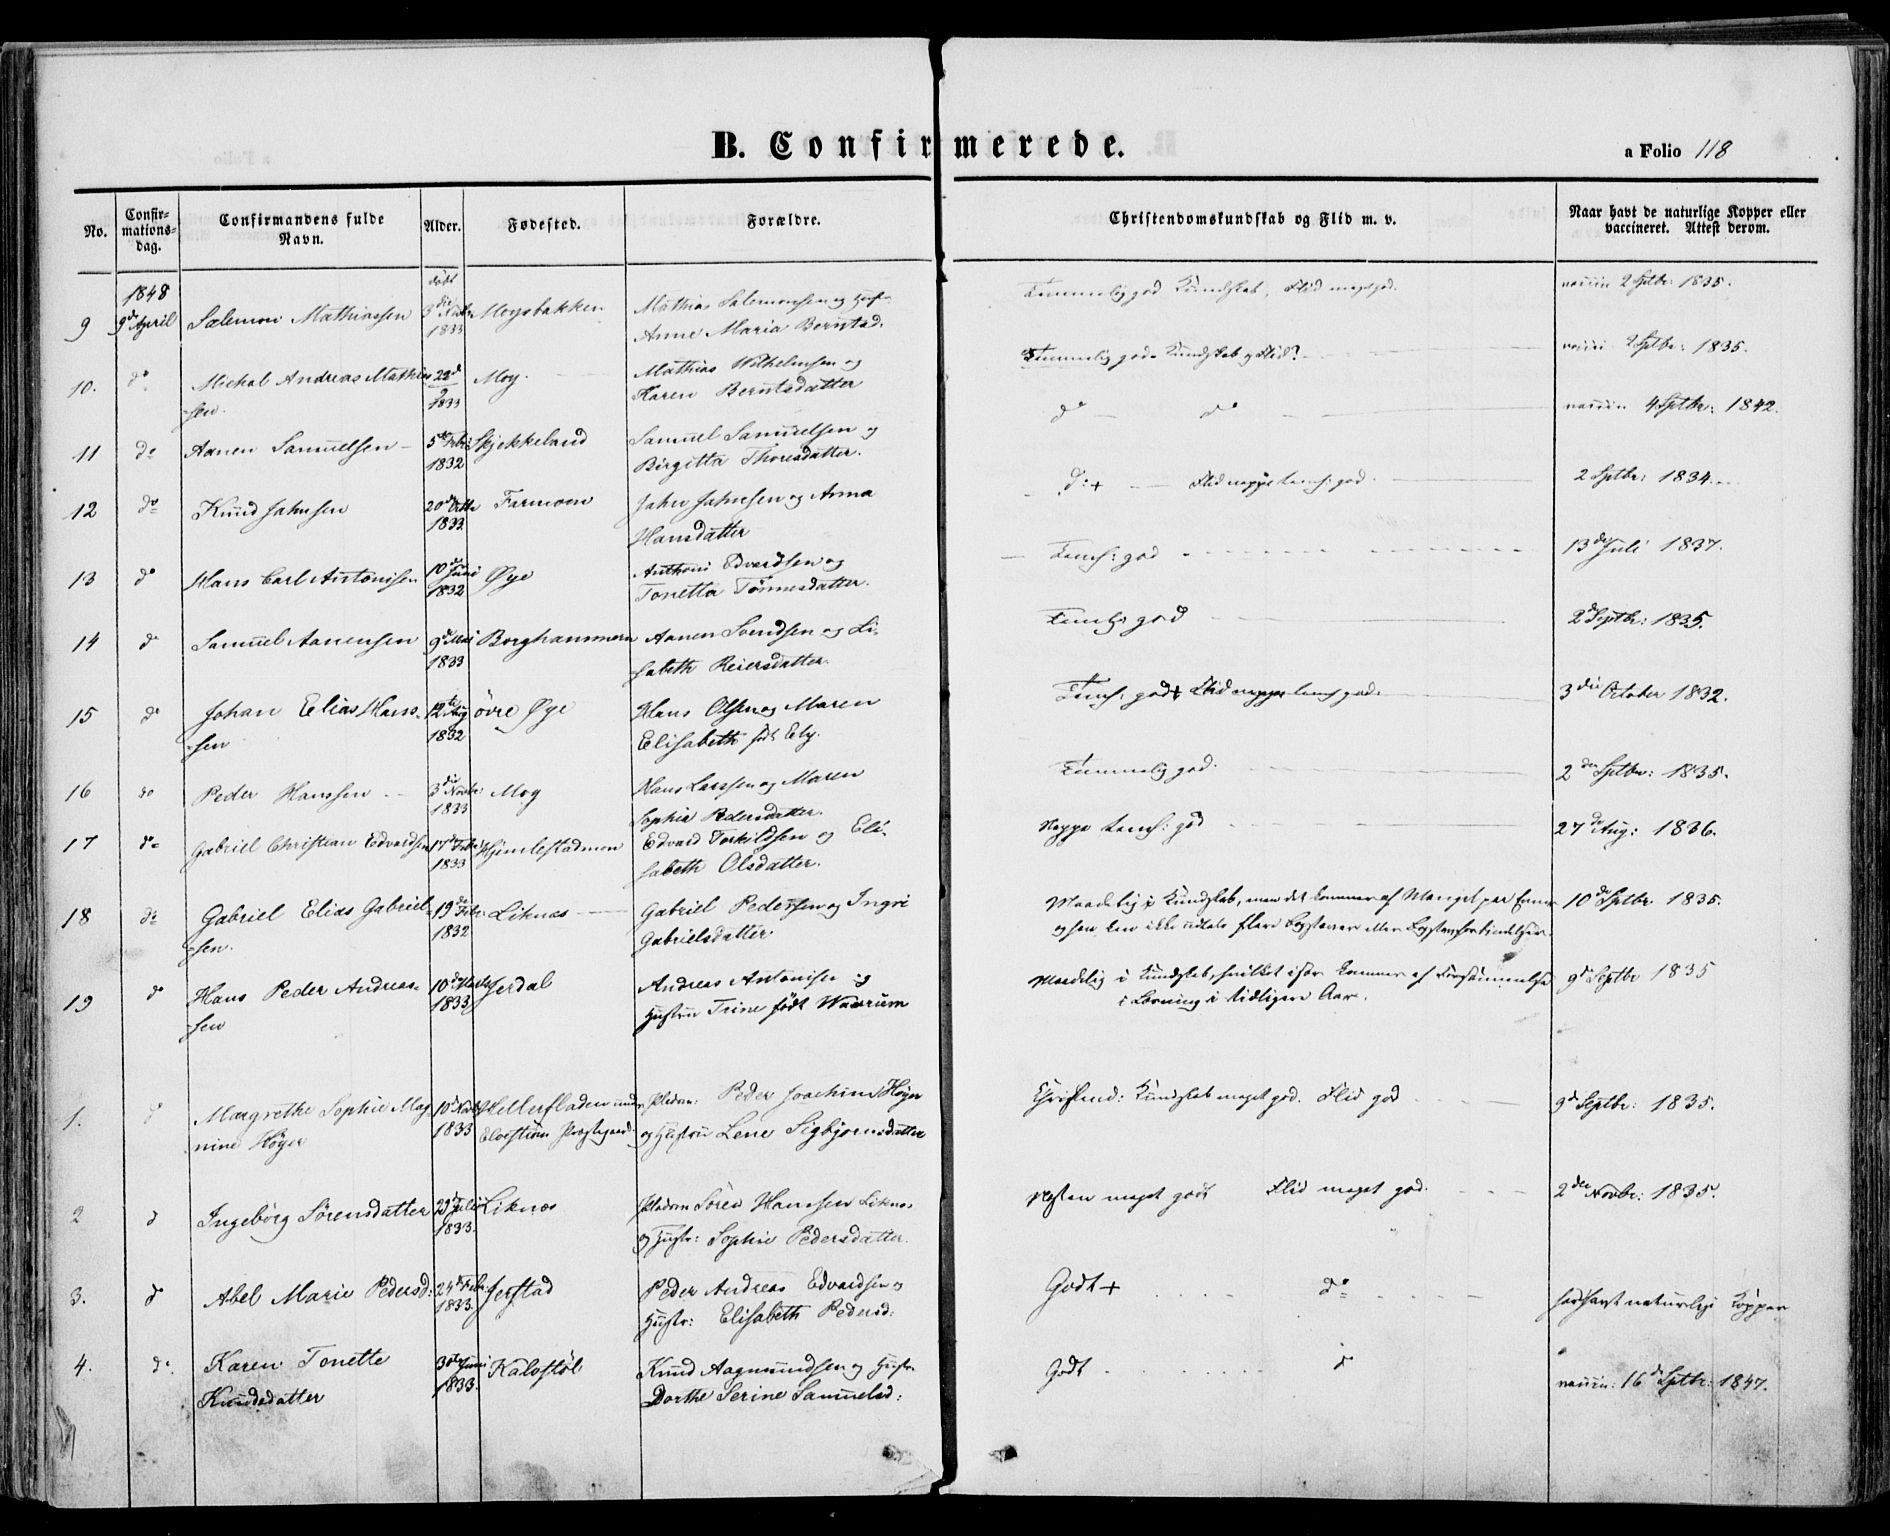 B. Confirmerede.
a Folio 118
No.
Confir-
mations-
dag.
Confirmandens fulde
Navn.
Alder.
Fødested.
Forældre.
Christendomskundskab og Flid m. v.
Naar havt de naturlige Kopper eller
vaccineret. Attest derom.
1848
født
9 9de April Salemon Mathiassen 1833 Moysbakken
Mathias Salemonsen og
Anne Maria Berntsd.
Temmelig god Kundskab, Flid meget god. 2 Sptbr. 1835.
10. do Michal Andreas Mathias
-sen.
23d
9
1833
Moy
Mathias Wilhelmsen og
Karen Berntsdatter
Temmelig god Kundskab og Flid? 2 Sptbr: 1835.
11 do Aanen Samuelsen 5te Febr 1832 Skjekkeland
Samuel Samuelsen og
Birgitta Thoresdatter.
do do 4 Sptbr: 1842.
12 do Knud Jahnsen 20de Octbr 1833 Farmoen
Jahn Jahnsen og Anna
Hansdatter
do + Flid neppe temh: god. 2 Sptbr: 1834.
13 do Hans Carl Antonisen 10de Juni 1832 Øye
Anthoni Edvardsen og
Tonetta Tönnesdatter.
Temh: god 13de Juli 1837.
14 do Samuel Aanensen 9de Mai 1833 Borghammern
Aanen Svendsen og Li-
sabeth Reiersdatter.
Temh: god 2d Septbr: 1835.
15 do Johan Elias Hans-
-sen
12te Aug 1832
övre Øye
Hans Olsen og Maren
Elisabeth født Ely.
Temh: god + Flid neppe temh god. 3die October 1832.
16 do Peder Hanssen 3die Novbr: 1833 Moy
Hans Larssen og Maren
Sophie Pedersdatter.
Temmelig god. 2den Sptbr: 1835.
17 do Gabriel Christian Edvardsen 17de Febr 1833 Himlestadmoen
Edvard Torkildsen og Eli-
sabeth Olsdatter.
Neppe temh: god 27de Aug: 1836.
18 do Gabriel Elias Gabriel-
-sen.
19de Febr: 1832
Liknæs
Gabriel Pederssen og Ingri
Gabrielsdatter
Maadelig i Kundskab, men det kommer af Mangel paa Evne
og han kan ikke udtale flere Bogstaver eller Bogstavforbindelser.
10de Sptbr 1835.
19 do Hans Peder Andreas-
-sen
10de 1833
Jerdal
Andreas Antonisen og
Hustru Trine født Waarum
Maadelig i Kundskab, hvilket især kommer af Forsömmelse
i Læsning i tidligere Aar.
9de Septbr 1835
1. do Margrethe Sophie Mag-
nine Höyer
10de 1833
Hellesfladen under
Elvestrøm Præstegaard
Pladsm: Peder Joachim Höyer
og Hustru Lene Sigbjørnsdatter
Christend: Kundskab meget god. Flid god 9d Septbr: 1835.
2 do Ingeborg Sörensdatter 29de Juli 1833. Liknæs
Pladsm Sören Hanssen Liknæs
og Hustr: Sophie Pedersdatter.
Næsten meget godt Flid meget god. 2den Novbr: 1835.
3. do Abel Marie Pedersd: 24de Febr: 1833. Jerstad
Peder Andreas Edvardsen og
Hustr: Elisabeth Pedersd:
Godt + do har havt naturlige Kopper
4. do Karen Tonette
Knudsdatter
30te Juni 1833.
Kalostöl
Knud Aagmundsen og Hustr
Dorthe Serine Samuelsd:
Godt do vaccin: 16de Sptbr: 1847.